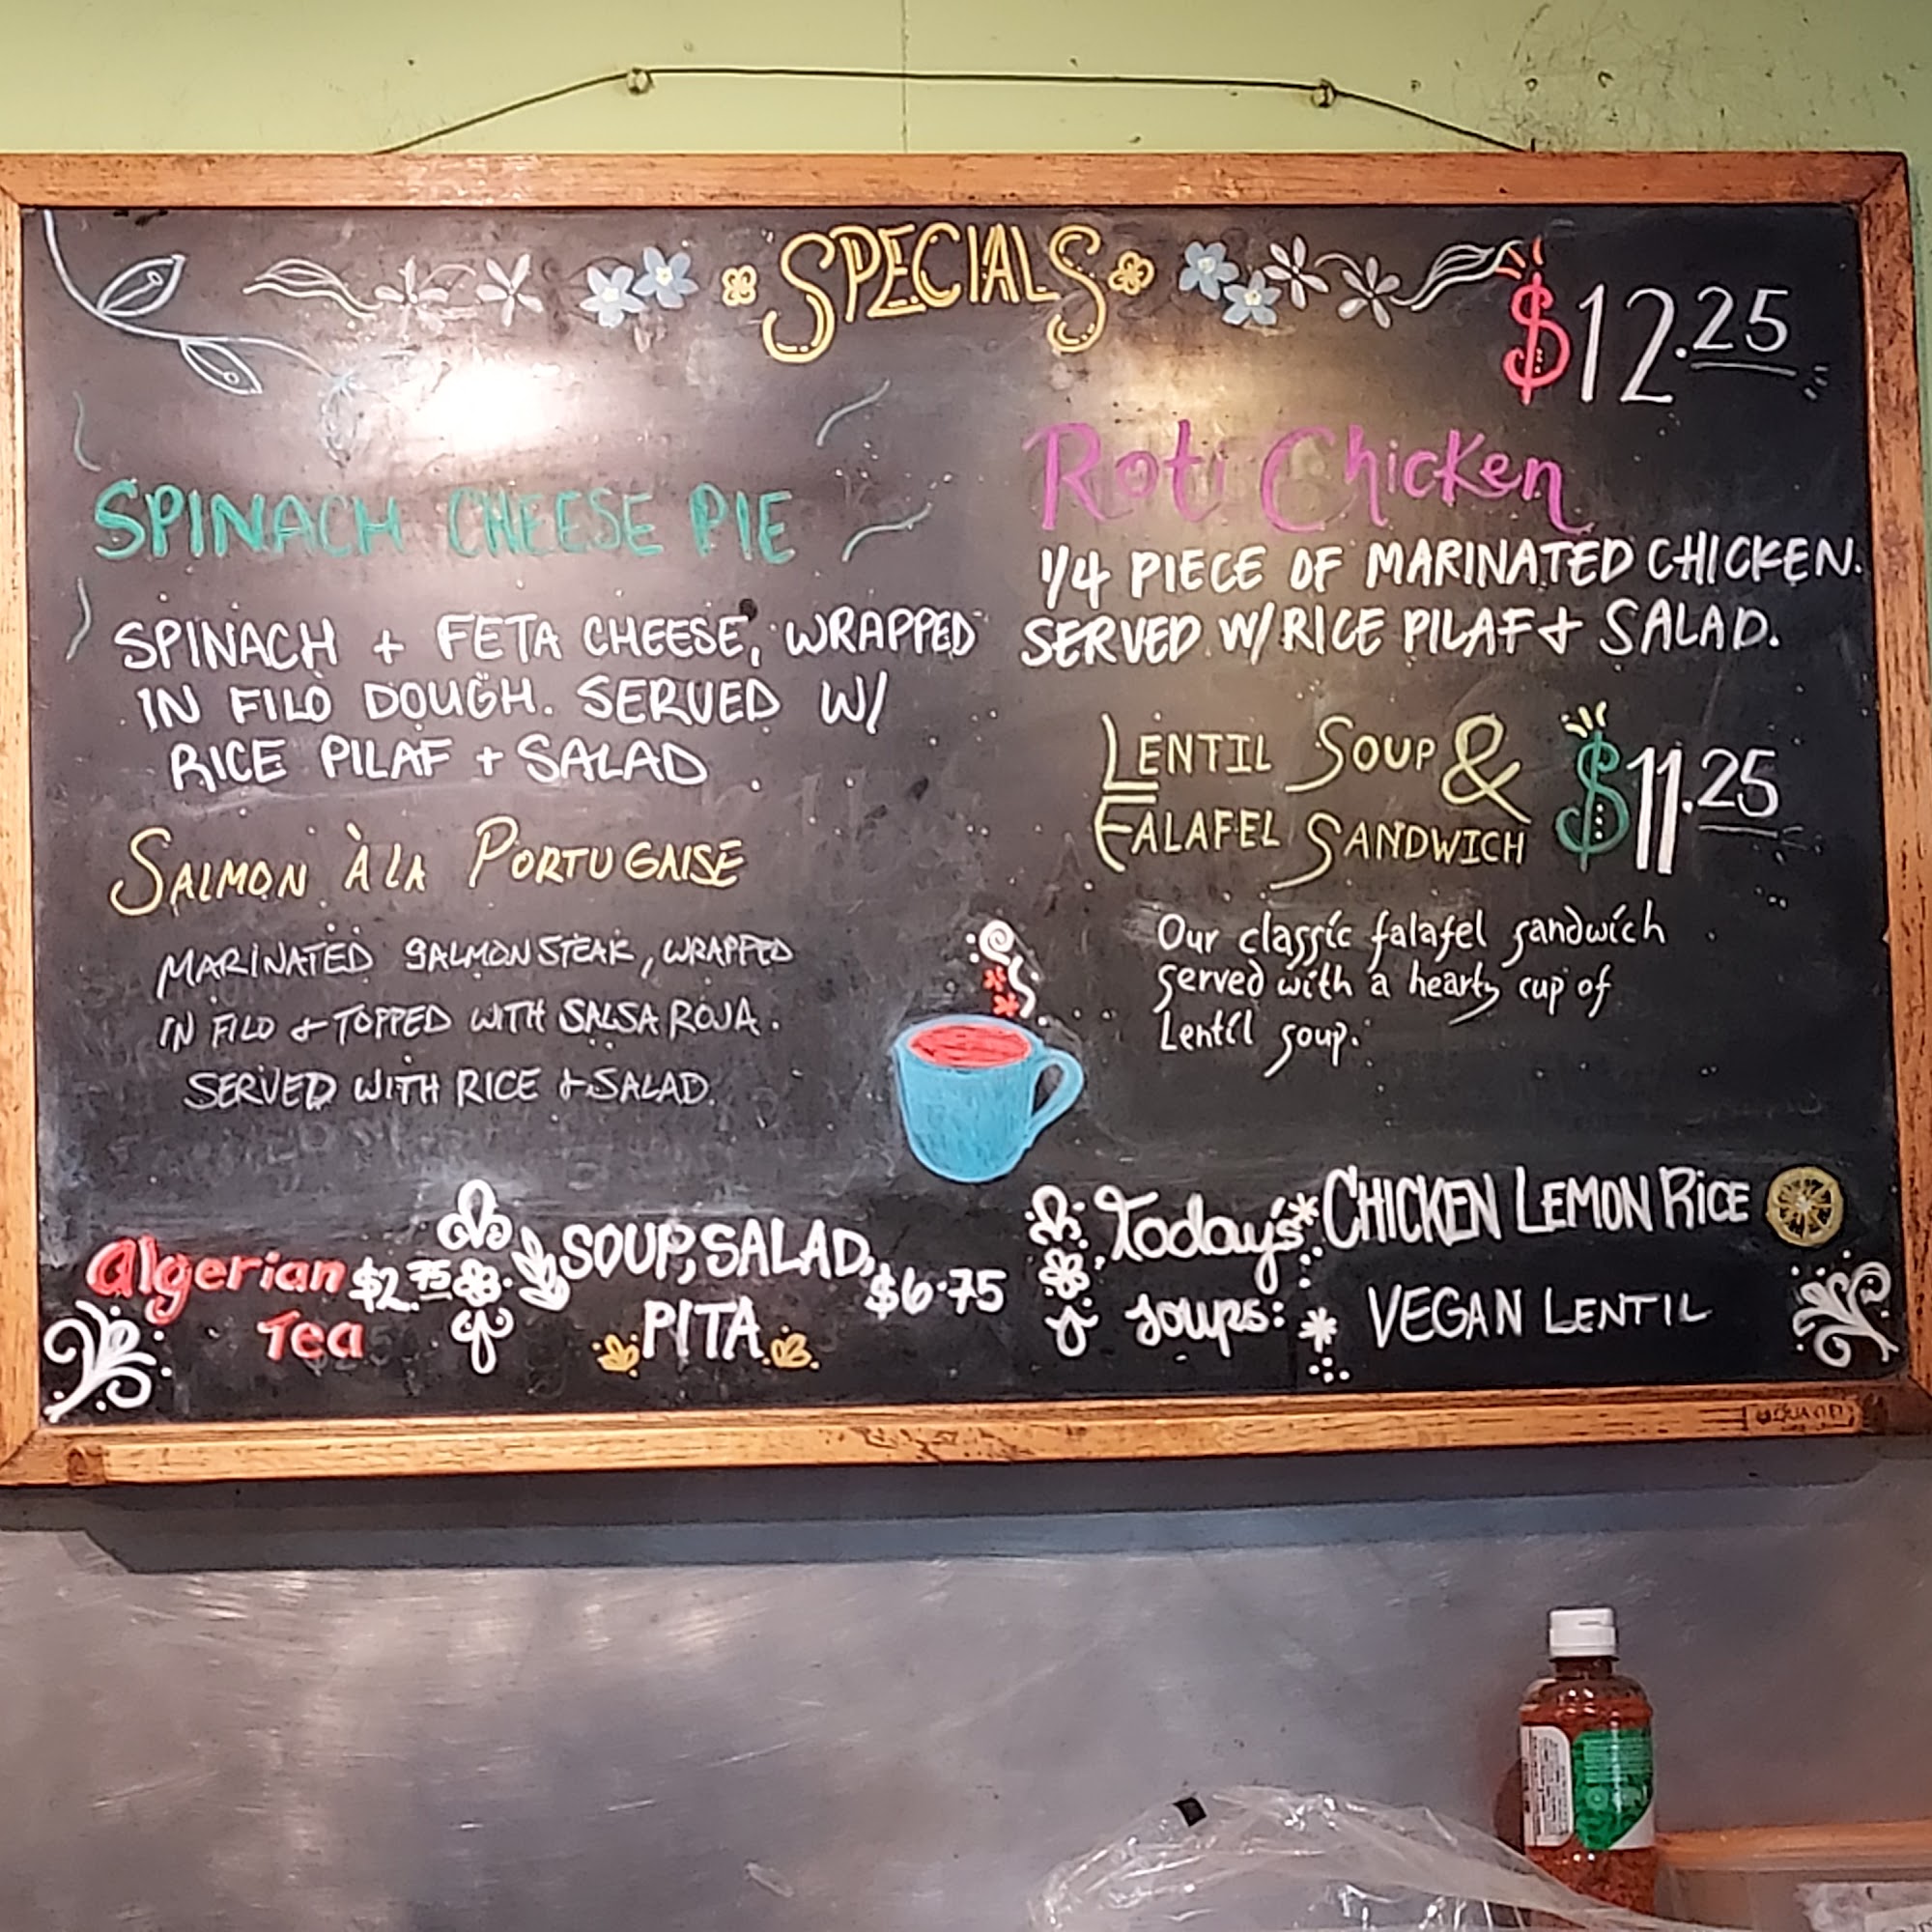 SPECIALS
$12.25
SPINACH CHEESE PIE
SPINACH + FETA CHEESE, WRAPPED
IN FILO DOUGH. SERVED W/
RICE PILAF + SALAD
SALMON À LA PORTUGAISE
MARINATED SALMON STEAK, WRAPPED
IN FILO & TOPPED WITH SALSA ROJA.
SERVED WITH RICE & SALAD.
Roti Chicken
1/4 PIECE OF MARINATED CHICKEN.
SERVED W/ RICE PILAF & SALAD.
LENTIL SOUP &
FALAFEL SANDWICH
$11.25
Our classic falafel sandwich
served with a hearty cup of
Lentil soup.
Algerian
Tea
$2.75
SOUP, SALAD,
PITA
$6.75
Today's
soups:
* CHICKEN LEMON RICE
* VEGAN LENTIL